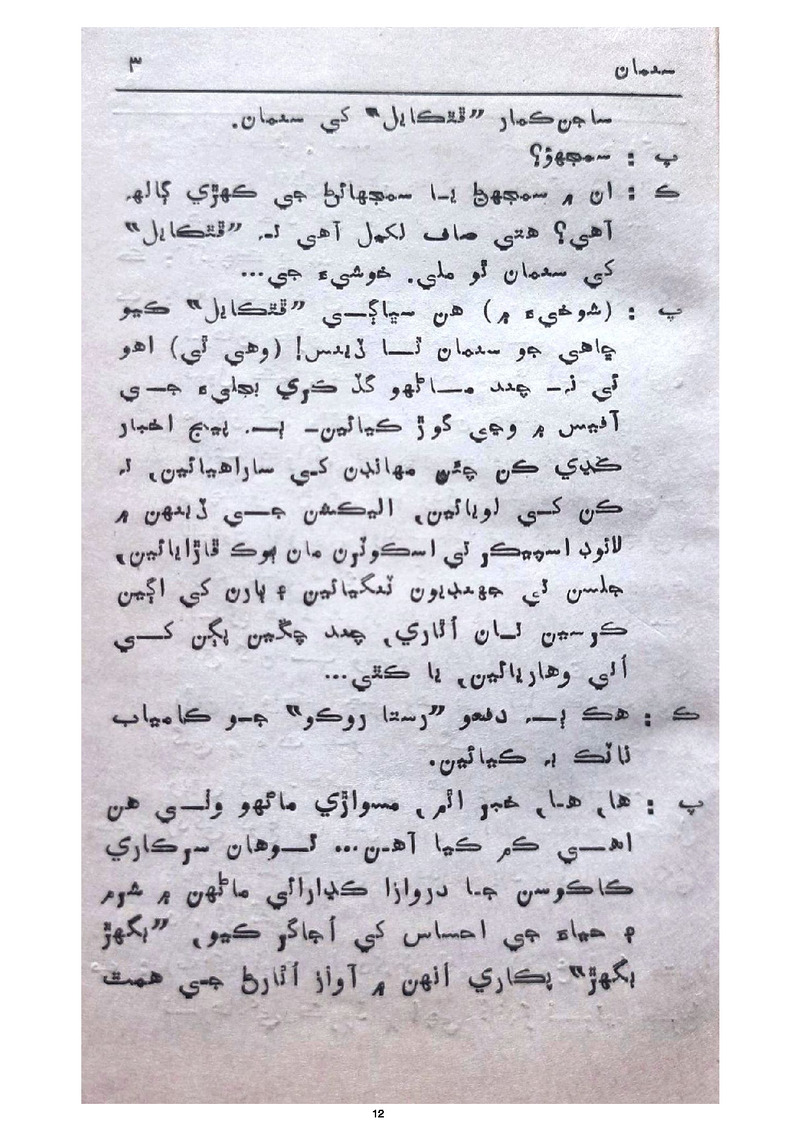 سنمان ٣
ساجن‌ڪمار ”ڦٽڪايل“ کي سنمان.
پ : سمجهو؟
ڪ : ان ۾ سمجهڻ يا سمجهائڻ جي ڪهڙي ڳالهہ
آهي؟ هتي صاف لکيل آهي تہ ”ڦٽڪايل“
کي سنمان ٿو ملي. خوشيءَ جي...
پ : (شوخيءَ ۾) هن سڀاڳي ”ڦٽڪايل“ ڪيو
ڇاهي جو سنمان ٿا ڏينس! (وهي ٿي) اهو
ئي نہ– چند ماڻهو گڏ ڪري بجليءَ جي
آفيس ۾ وڃي گوڙ ڪيائين– ٻہ پيج اخبار
ڪڍي ڪن چڻن مهانڊن کي ساراهيائين، تہ
ڪن کي لويائين، اليڪشن جي ڏينهن ۾
لائوڊ اسپيڪر تي اسڪوٽرن مان ٻوڪ ڦاڙايائين،
جلسن تي جهنڊيون ٽنگيائين ۽ ٻارن کي اڳين
ڪرسين تان اُٿاري، چند چڱين پڳن کي
اُتي وهاريائين، يا ڪٿي...
ڪ : هڪ ٻہ دفعو ”رستا روڪو“ جو ڪامياب
ناٽڪ بہ ڪيائين.
پ : ها، ها، خبر اٿم، مسواڙي ماڻهو وٺي هن
اهي ڪم ڪيا آهن... توهان سرڪاري
ڪاڪوسن جا دروازا ڪڍارائي ماڻهن ۾ شرم
۽ حياءَ جي احساس کي اُجاگر ڪيو، ”بگهڙ
بگهڙ“ پڪاري اُنهن ۾ آواز اُٿارڻ جي همت
12